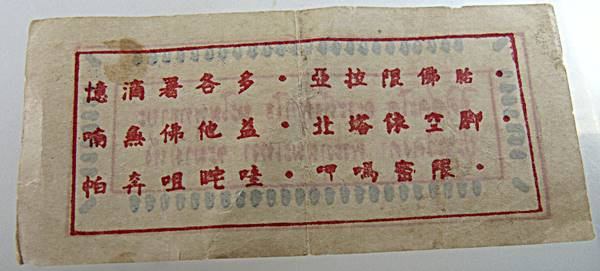 憶滴署各多•亞拉限佛胎•
喃無佛他益•北塔依空脚•
帕奔咀咤哇•呷嗎密限•